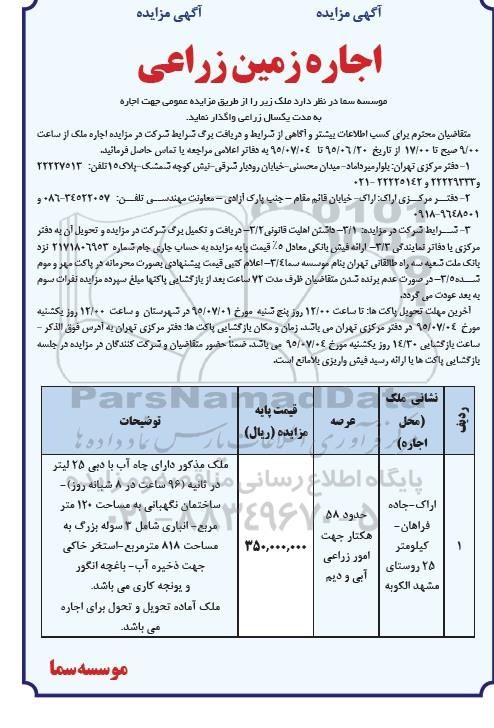 آگهی مزایده
آگهی مزایده
اجاره زمین زراعی
موسسه سما در نظر دارد ملک زیر را از طریق مزایده عمومی جهت اجاره
به مدت یکسال زراعی واگذار نماید.
متقاضیان محترم برای کسب اطلاعات بیشتر و آگاهی از شرایط و دریافت برگ شرایط شرکت در مزایده اجاره ملک از ساعت
۹/۰۰ صبح تا ۱۷/۰۰ از تاریخ ۹۵/۰۶/۲۰ تا ۹۵/۰۷/۰۴ به دفاتر اعلامی مراجعه یا تماس حاصل فرمائید.
۱- دفتر مرکزی تهران: بلوار میرداماد- میدان محسنی- خیابان رودبار شرقی- نبش کوچه شمشک- پلاک۱۵ تلفن: ۲۲۲۲۷۵۱۳
و ۲۲۲۲۹۳۳۳ و ۲۲۲۲۵۱۴۲ -۰۲۱
۲- دفتـر مرکـزی اراک: اراک- خیابان قائم مقام – جنب پارک آزادی – معاونت مهندسـی تلفـن: ۳۴۵۲۲۰۵۷-۰۸۶ و
۹۶۴۸۵۰۱-۰۹۱۸
۳- شـرایط شرکت در مزایده: ۳/۱- داشتن اهلیت قانونی۳/۲- دریافت و تکمیل برگ شرکت در مزایده و تحویل آن به دفتر
مرکزی یا دفاتر نمایندگی ۳/۳- ارائه فیش بانکی معادل ۵٪ قیمت پایه مزایده به حساب جاری جام شماره ۲۱۷۱۸۰۶۹۵۳ نزد
بانک ملت شعبه سه راه طالقانی تهران بنام موسسه سما۳/۴- اعلام کتبی قیمت پیشنهادی بصورت محرمانه در پاکت مهر و موم
شـده۳/۵- در صورت عدم برنده شدن متقاضیان ظرف مدت ۷۲ ساعت بعد از بازگشایی پاکتها مبلغ سپرده مزایده نفرات سوم
به بعد عودت می گردد.
آخرین مهلت تحویل پاکت ها: تا ساعت ۱۲/۰۰ روز پنج شنبه مورخ ۹۵/۰۷/۰۱ در شهرستان و ساعت ۱۲/۰۰ روز یکشنبه
مورخ ۹۵/۰۷/۰۴ در دفتر مرکزی تهران می باشد. زمان و مکان بازگشایی پاکت ها: دفتر مرکزی تهران به آدرس فوق الذکر -
ساعت بازگشایی ۱۴/۳۰ روز یکشنبه مورخ ۹۵/۰۷/۰۴ می باشد. ضمناً حضور متقاضیان و شرکت کنندگان در مزایده در جلسه
بازگشایی پاکت ها با ارائه رسید فیش واریزی بلامانع است.
ردیف
نشانی ملک
(محل
اجاره)
عرصه
قیمت پایه
مزایده (ریال)
توضیحات
۱
اراک-جاده
فراهان-
کیلومتر
۲۵ روستای
مشهد الکوبه
حدود ۵۸
هکتار جهت
امور زراعی
آبی و دیم
۳۵۰,۰۰۰,۰۰۰
ملک مذکور دارای چاه آب با دبی ۲۵ لیتر
در ثانیه (۹۶ ساعت در ۸ شبانه روز)-
ساختمان نگهبانی به مساحت ۱۲۰ متر
مربع- انباری شامل ۳ سوله بزرگ به
مساحت ۸۱۸ مترمربع-استخر خاکی
جهت ذخیره آب- باغچه انگور
و یونجه کاری می باشد.
ملک آماده تحویل و تحول برای اجاره
می باشد.
موسسه سما
ParsNamadData
پایگاه اطلاع رسانی مناقصه و مزایده